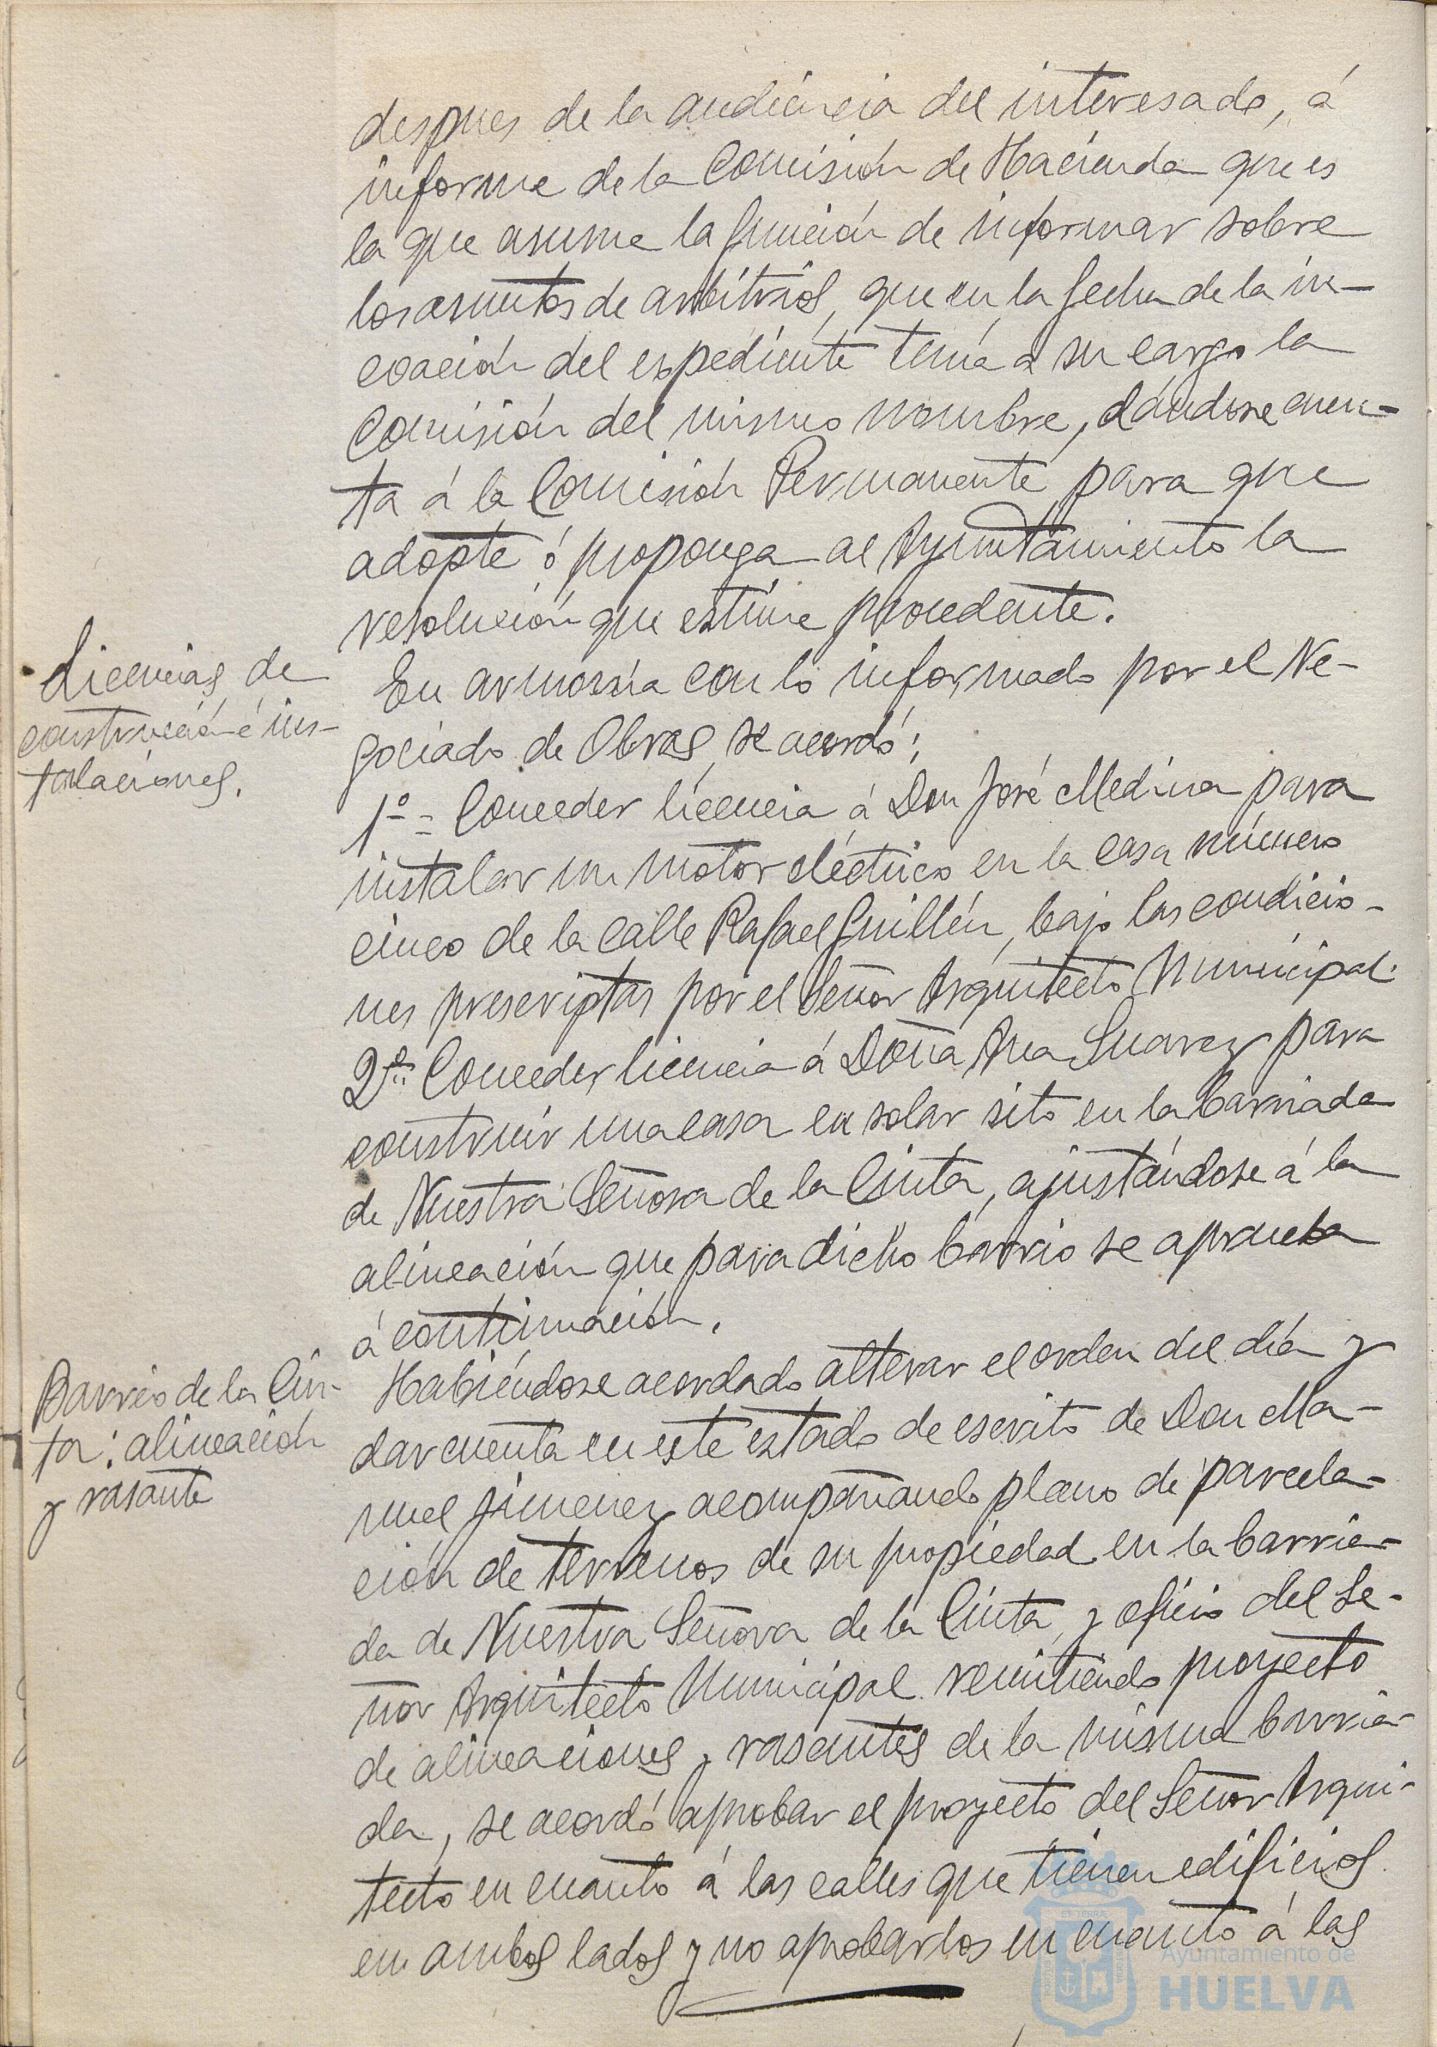 despues de la audiencia del interesado, á
informe de la Comisión de Hacienda que es
la que asume la función de informar sobre
los asuntos de arbitrios, que en la fecha de la in-
coación del expediente tenía a su cargo la
Comisión del mismo nombre, dándose cuen-
ta á la Comisión Permanente para que
adopte ó proponga al Ayuntamiento la
resolución que estime procedente.
Licencias de
construcción é ins-
talaciones.
En armonía con lo informado por el Ne-
gociado de Obras, se acordó:
1º = Conceder licencia á Don José Medina para
instalar un motor eléctrico en la casa número
cinco de la calle Rafael Guillén, bajo las condicio-
nes prescriptas por el Señor Arquitecto Municipal.
2º = Conceder licencia á Doña Ana Suarez para
construir una casa en solar sito en la barriada
de Nuestra Señora de la Cinta, ajustándose á la
alineación que para dicho barrio se aprueba
á continuación.
Barrio de la Cin-
ta: alineación
y rasante
Habiéndose acordado alterar el orden del día y
dar cuenta en este estado de escrito de Don Ma-
nuel Jimenez acompañando plano de parcela-
ción de terrenos de su propiedad en la barria-
da de Nuestra Señora de la Cinta, y oficio del Se-
ñor Arquitecto Municipal remitiendo proyecto
de alineaciones y rasantes de la misma barria-
da, se acordó aprobar el proyecto del Señor Arqui-
tecto en cuanto á las calles que tienen edificios
en ambos lados y no aprobarlos en cuanto á las
Ayuntamiento de
HUELVA